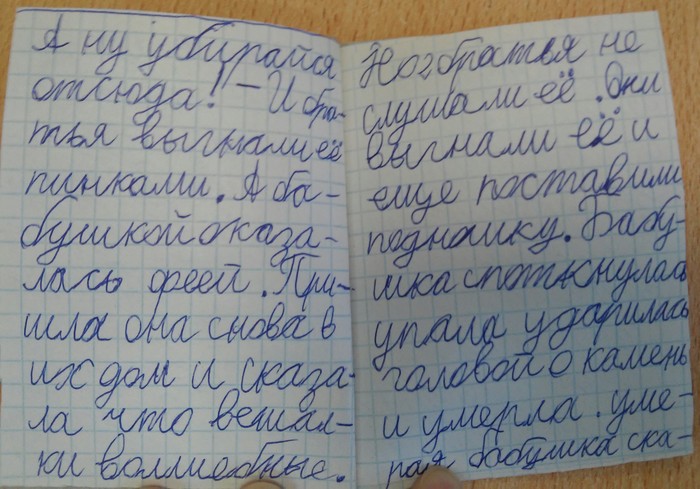 А ну убирайся
отсюда! – И бра-
тья выгнали её
пинками. А ба-
бушкой оказа-
лась феей. При-
шла она снова в
их дом и сказа-
ла что вешал-
ки воллшебные.
Но братья не
слушали её. Они
выгнали её и
еще поставили
подножку. Бабу-
шка споткнулась
упала ударилась
головой о камень
и умерла. уме-
рая бабушка ска-